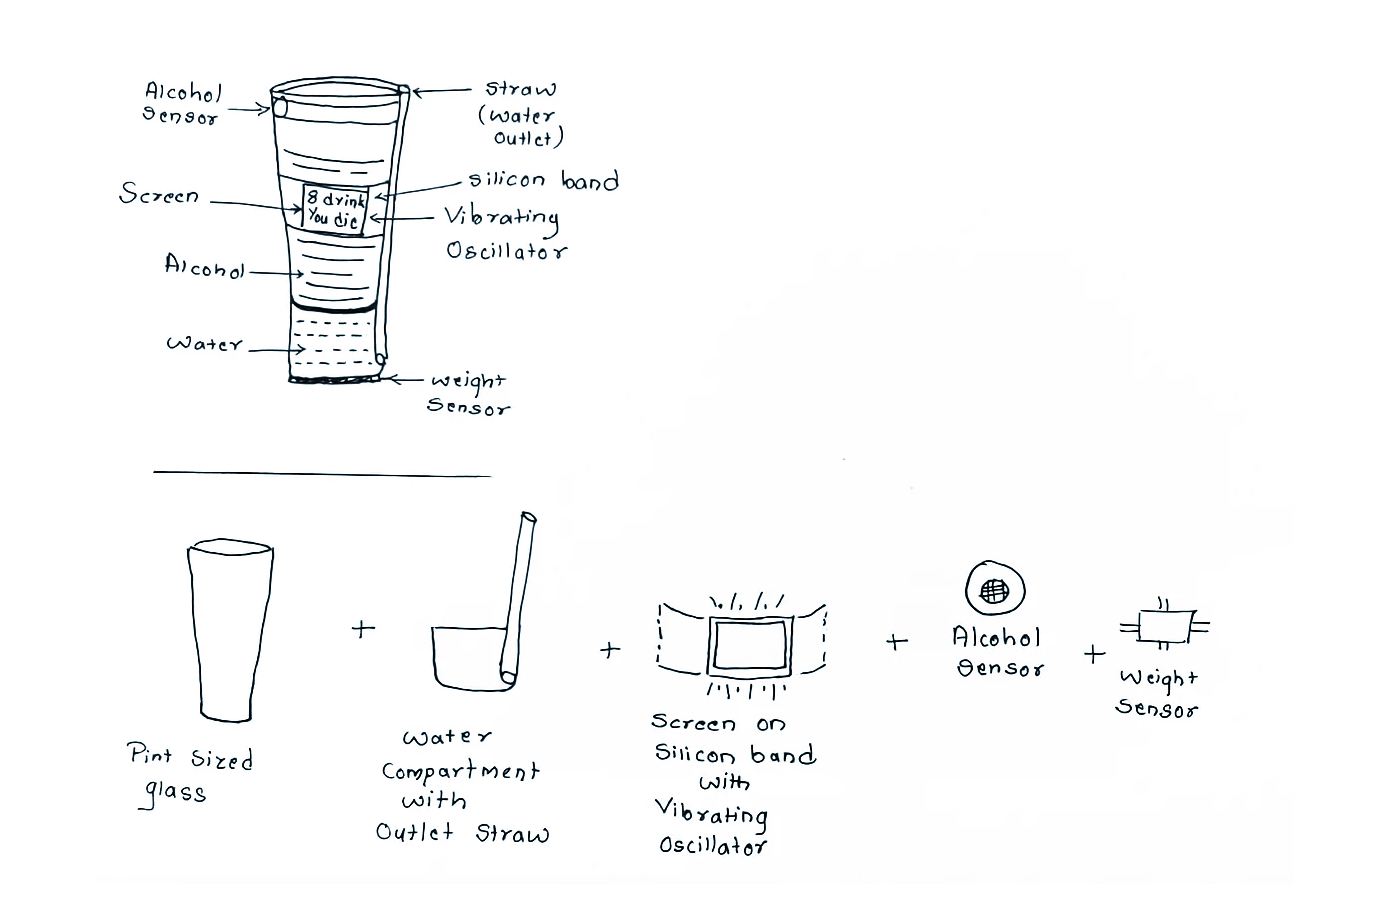 Alcohol
Sensor
Straw
(water
Outlet)
Screen
8 drink
You die
silicon band
Vibrating
Oscillator
Alcohol
Water
weight
Sensor
Pint Sized
glass
+
Water
Compartment
with
Outlet Straw
+
Screen on
Silicon band
with
Vibrating
Oscillator
+
Alcohol
Sensor
+
Weight
Sensor